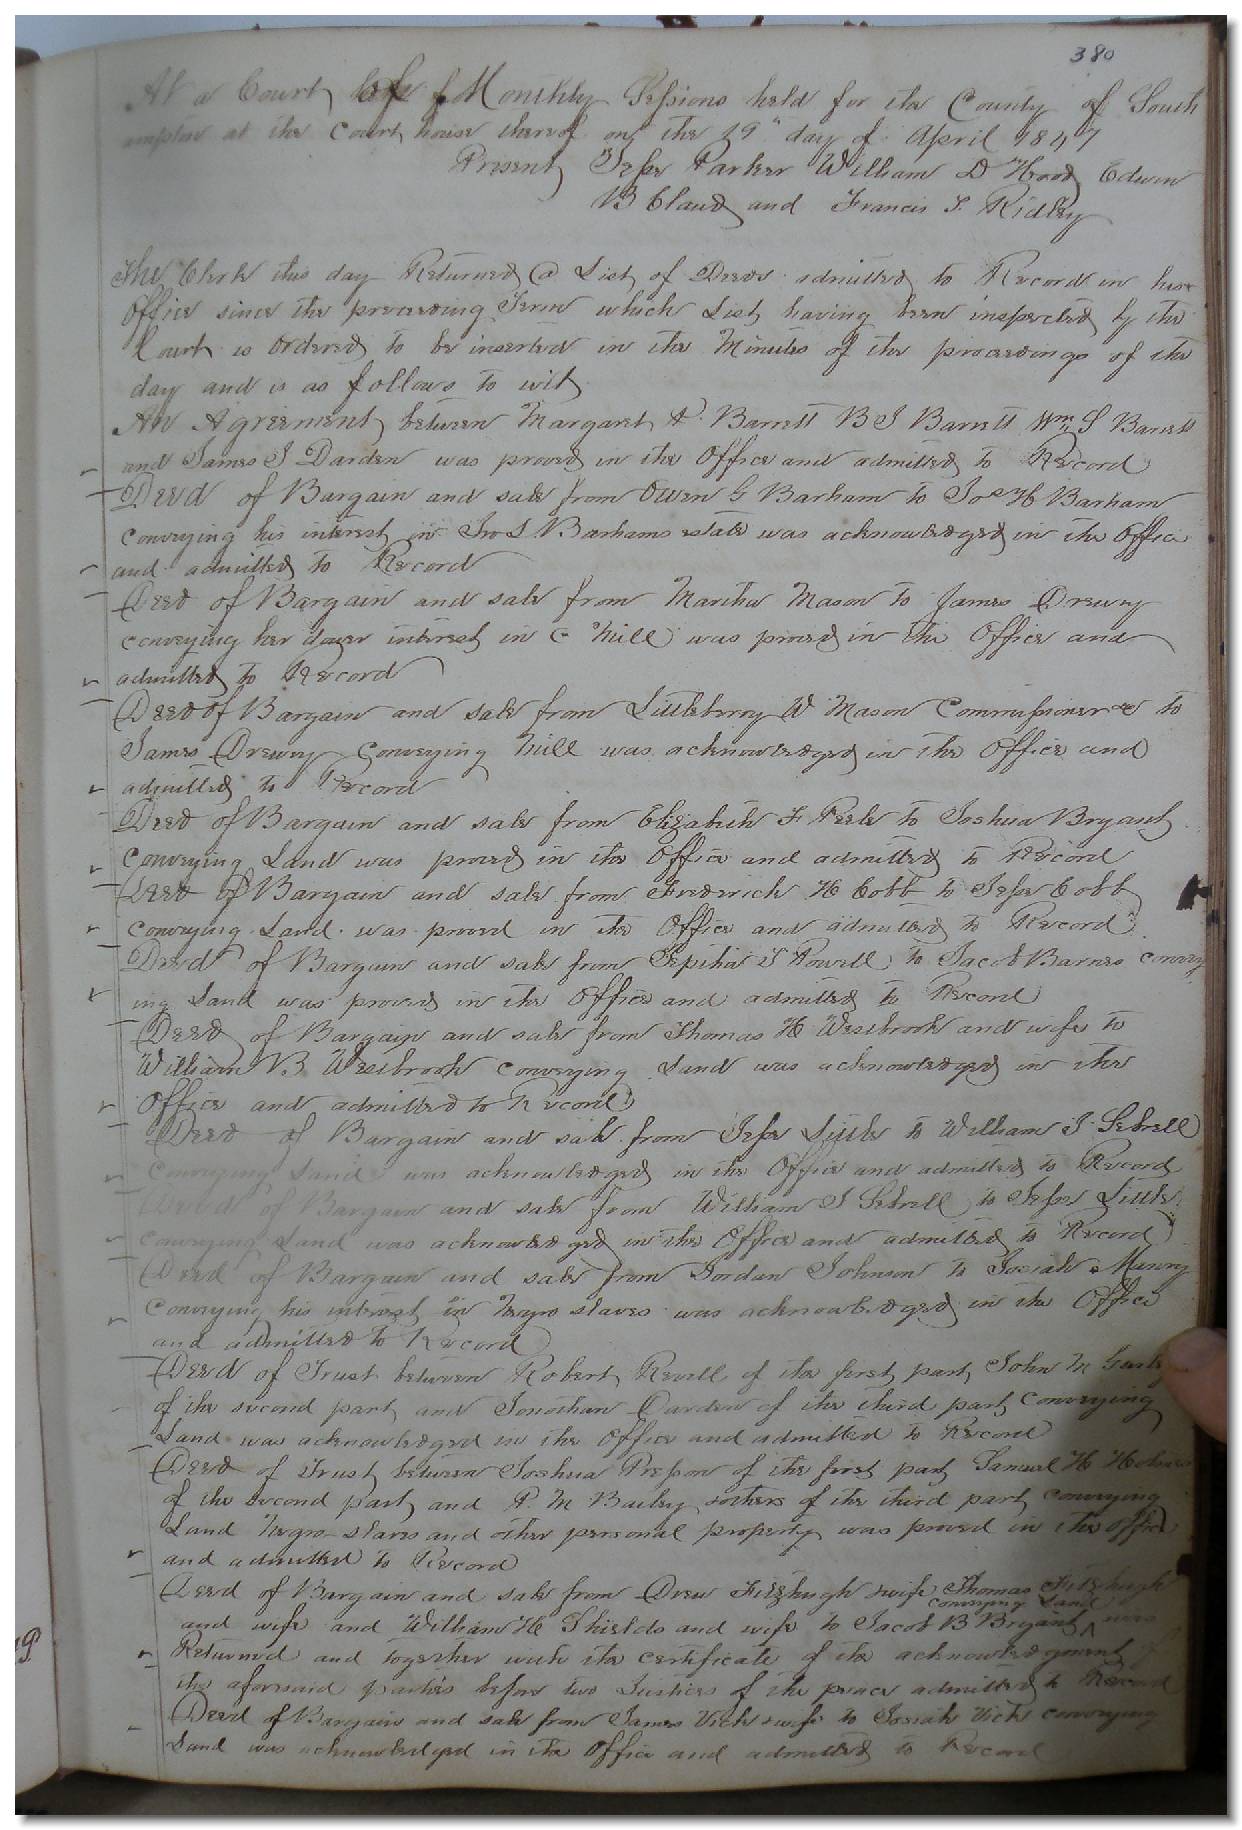 380
At a Court of Monthly Sessions held for the County of South
ampton at the Court house thereof on the 19" day of April 1847
Present Jesse Parker William D Hood Edwin
B Claud and Francis T. Ridley
The Clerk this day Returned a List of Deeds admitted to Record in his
Office since the preceeding Term which List having been inspected by the
Court is Ordered to be inserted in the Minutes of the proceedings of the
day and is as follows to wit
An Agreement between Margaret A. Barrett B J Barrett Wm S Barrett
and James J Darden was proved in the Office and admitted to Record
Deed of Bargain and sale from Owen G Barham to Jos H Barham
conveying his interest in Jno S Barhams estate was acknowledged in the Office
and admitted to Record
Deed of Bargain and sale from Martha Mason to James Drewry
conveying her dower interest in a Mill was proved in the Office and
admitted to Record
Deed of Bargain and sale from Littleberry W Mason Commissioner &c to
James Drewry Conveying Mill was acknowledged in the Office and
admitted to Record
Deed of Bargain and sale from Elizabeth F Peele to Joshua Bryant
Conveying Land was proved in the Office and admitted to Record
Deed of Bargain and sale from Frederick H Cobb to Jesse Cobb
conveying Land was proved in the Office and admitted to Record
Deed of Bargain and sale from Jeptha T Powell to Jacob Barnes convey
ing Land was proved in the Office and admitted to Record
Deed of Bargain and sale from Thomas H Westbrook and wife to
William B Westbrook conveying Land was acknowledged in the
Office and admitted to Record
Deed of Bargain and sale from Jesse Little to William J Sebrell
Conveying Land was acknowledged in the Office and admitted to Record
Deed of Bargain and sale from William J Sebrell to Jesse Little
conveying Land was acknowledged in the Office and admitted to Record
Deed of Bargain and sale from Jordan Johnson to Josiah Murry
conveying his interest in Negro slaves was acknowledged in the Office
and admitted to Record
Deed of Trust between Robert Revell of the first part John M
of the second part and Jonathan Darden of the third part Conveying
Land was acknowledged in the Office and admitted to Record
Deed of Trust between Joshua Presson of the first part Samuel H Holmes
of the second part and P. M Bailey others of the third part conveying
Land Negro slaves and other personal property was proved in the office
and admitted to Record
Deed of Bargain and sale from Drew Fitzhugh & wife Thomas Fitzhugh
conveying Land
and wife and William H Shields and wife to Jacob B Bryant ^ was
Returned and together with the certificate of the acknowledgment of
the aforesaid parties before two Justices of the peace admitted to Record
Deed of Bargain and sale from James Vick & wife to Josiah Vick conveying
Land was acknowledged in the Office and admitted to Record